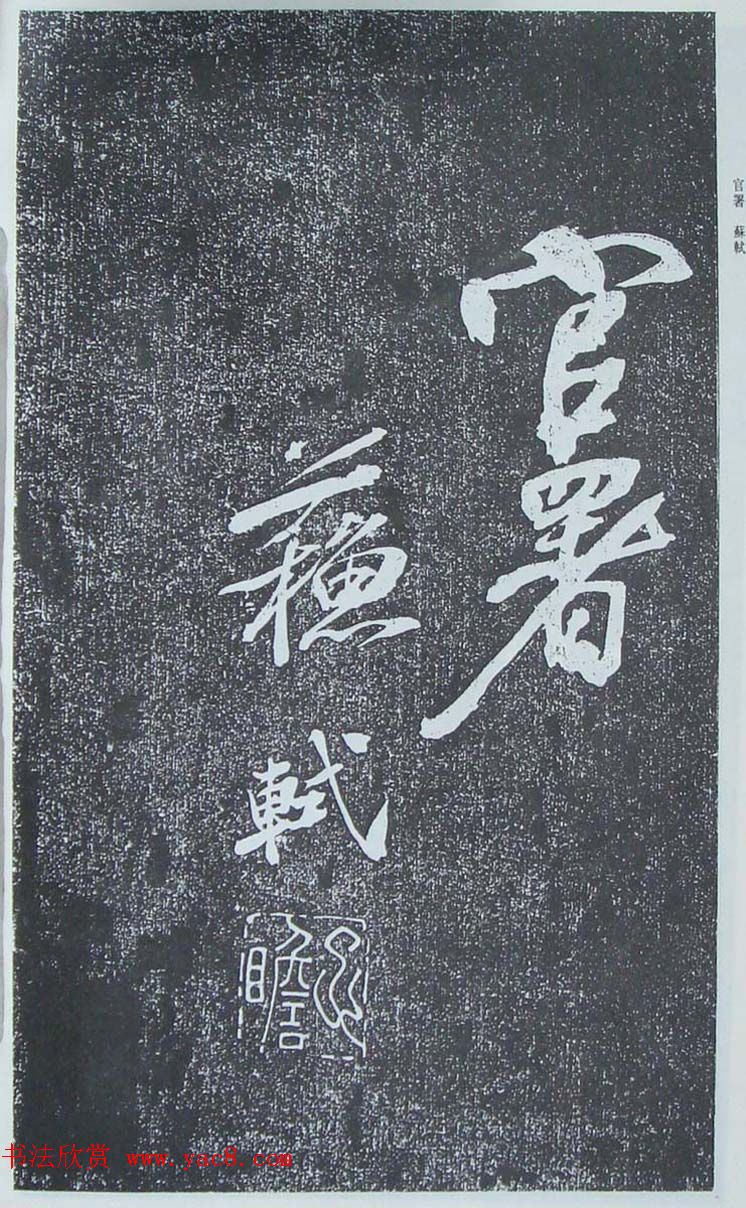 官署 蘇軾
官署
蘇軾
子瞻
书法欣赏 www.yac8.com